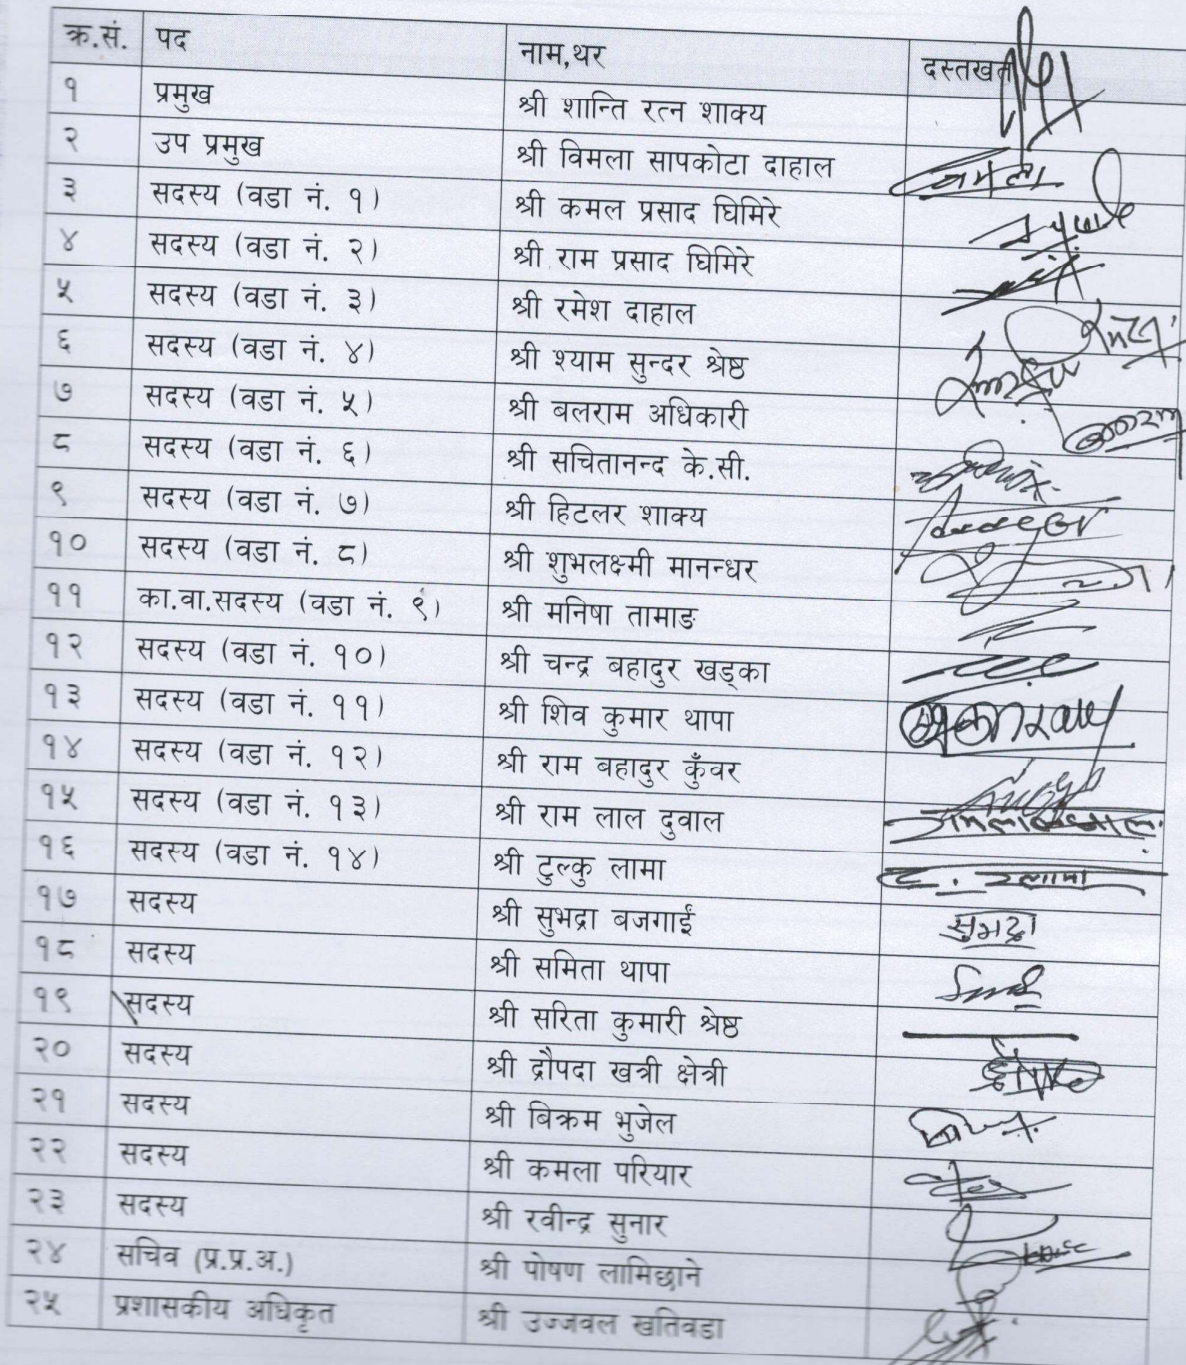 क्र.सं. पद नाम,थर दस्तखत
१ प्रमुख श्री शान्ति रत्न शाक्य
२ उप प्रमुख श्री विमला सापकोटा दाहाल
३ सदस्य (वडा नं. १) श्री कमल प्रसाद घिमिरे
४ सदस्य (वडा नं. २) श्री राम प्रसाद घिमिरे
५ सदस्य (वडा नं. ३) श्री रमेश दाहाल
६ सदस्य (वडा नं. ४) श्री श्याम सुन्दर श्रेष्ठ
७ सदस्य (वडा नं. ५) श्री बलराम अधिकारी
८ सदस्य (वडा नं. ६) श्री सचितानन्द के.सी.
९ सदस्य (वडा नं. ७) श्री हिटलर शाक्य
१० सदस्य (वडा नं. ८) श्री शुभलक्ष्मी मानन्धर
११ का.वा.सदस्य (वडा नं. ९) श्री मनिषा तामाङ
१२ सदस्य (वडा नं. १०) श्री चन्द्र बहादुर खड्का
१३ सदस्य (वडा नं. ११) श्री शिव कुमार थापा
१४ सदस्य (वडा नं. १२) श्री राम बहादुर कुँवर
१५ सदस्य (वडा नं. १३) श्री राम लाल दुवाल
१६ सदस्य (वडा नं. १४) श्री टुल्कु लामा
१७ सदस्य श्री सुभद्रा बजगाईं सुभद्रा
१८ सदस्य श्री समिता थापा
१९ सदस्य श्री सरिता कुमारी श्रेष्ठ
२० सदस्य श्री द्रौपदा खत्री क्षेत्री
२१ सदस्य श्री बिक्रम भुजेल
२२ सदस्य श्री कमला परियार
२३ सदस्य श्री रवीन्द्र सुनार
२४ सचिव (प्र.प्र.अ.) श्री पोषण लामिछाने
२५ प्रशासकीय अधिकृत श्री उज्जवल खतिवडा